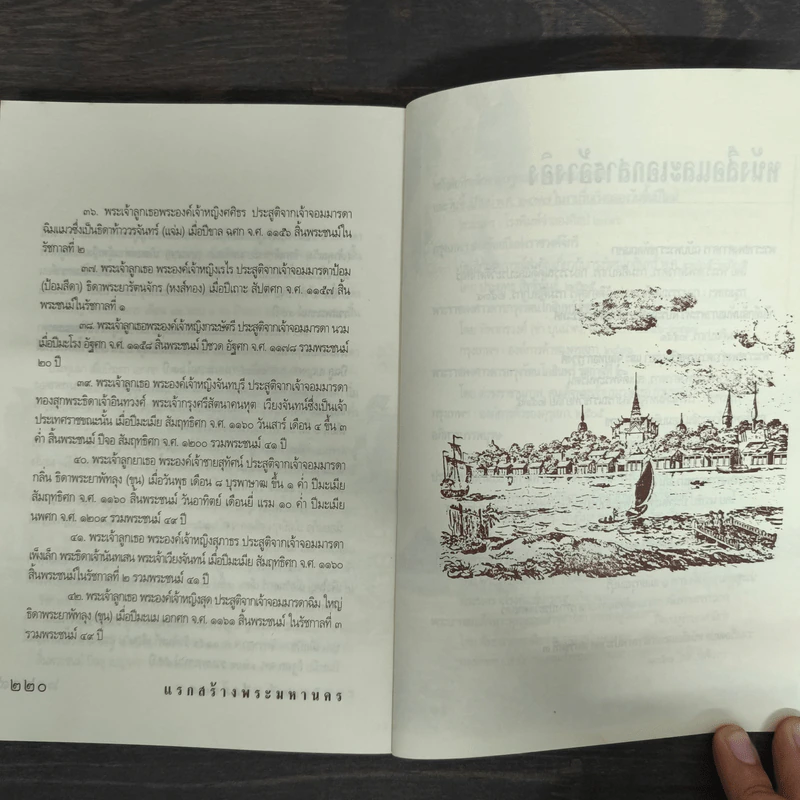 ๓๖. พระเจ้าลูกเธอพระองค์เจ้าหญิงศศิธร ประสูติจากเจ้าจอมมารดา
ฉิมแมวซึ่งเป็นธิดาท้าววรจันทร์ (แจ่ม) เมื่อปีขาล ฉศก จ.ศ. ๑๑๕๖ สิ้นพระชนม์ใน
รัชกาลที่ ๒
๓๗. พระเจ้าลูกเธอ พระองค์เจ้าหญิงเรไร ประสูติจากเจ้าจอมมารดาป้อม
(ป้อมสีดา) ธิดาพระยารัตนจักร (หงส์ทอง) เมื่อปีเถาะ สัปตศก จ.ศ. ๑๑๕๗ สิ้น
พระชนม์ในรัชกาลที่ ๑
๓๘. พระเจ้าลูกเธอพระองค์เจ้าหญิงกระษัตรี ประสูติจากเจ้าจอมมารดา นวม
เมื่อปีมะโรง อัฐศก จ.ศ. ๑๑๕๘ สิ้นพระชนม์ ปีชวด อัฐศก จ.ศ. ๑๑๗๘ รวมพระชนม์
๒๐ ปี
๓๙. พระเจ้าลูกเธอ พระองค์เจ้าหญิงจันทบุรี ประสูติจากเจ้าจอมมารดา
ทองสุกพระธิดาเจ้าอินทวงศ์ พระเจ้ากรุงศรีสัตนาคนหุต เวียงจันทน์ซึ่งเป็นเจ้า
ประเทศราชขณะนั้น เมื่อปีมะเมีย สัมฤทธิศก จ.ศ. ๑๑๖๐ วันเสาร์ เดือน ๔ ขึ้น ๓
ค่ำ สิ้นพระชนม์ ปีจอ สัมฤทธิศก จ.ศ. ๑๒๐๐ รวมพระชนม์ ๔๑ ปี
๔๐. พระเจ้าลูกยาเธอ พระองค์เจ้าชายสุทัศน์ ประสูติจากเจ้าจอมมารดา
กลิ่น ธิดาพระยาพัทลุง (ขุน) เมื่อวันพุธ เดือน ๘ บุรพาษาฒ ขึ้น ๑ ค่ำ ปีมะเมีย
สัมฤทธิศก จ.ศ. ๑๑๖๐ สิ้นพระชนม์ วันอาทิตย์ เดือนยี่ แรม ๑๐ ค่ำ ปีมะเมีย
นพศก จ.ศ. ๑๒๐๙ รวมพระชนม์ ๔๙ ปี
๔๑. พระเจ้าลูกเธอ พระองค์เจ้าหญิงสุภาธร ประสูติจากเจ้าจอมมารดา
เพ็งเล็ก พระธิดาเจ้านันทเสน พระเจ้าเวียงจันทน์ เมื่อปีมะเมีย สัมฤทธิศก จ.ศ. ๑๑๖๐
สิ้นพระชนม์ในรัชกาลที่ ๒ รวมพระชนม์ ๔๑ ปี
๔๒. พระเจ้าลูกเธอ พระองค์เจ้าหญิงสุด ประสูติจากเจ้าจอมมารดาฉิม ใหญ่
ธิดาพระยาพัทลุง (ขุน) เมื่อปีมะแม เอกศก จ.ศ. ๑๑๖๑ สิ้นพระชนม์ ในรัชกาลที่ ๓
รวมพระชนม์ ๔๙ ปี
๒๒๐
แรกสร้างพระมหานคร
หนังสือและเอกสารอ้างอิง